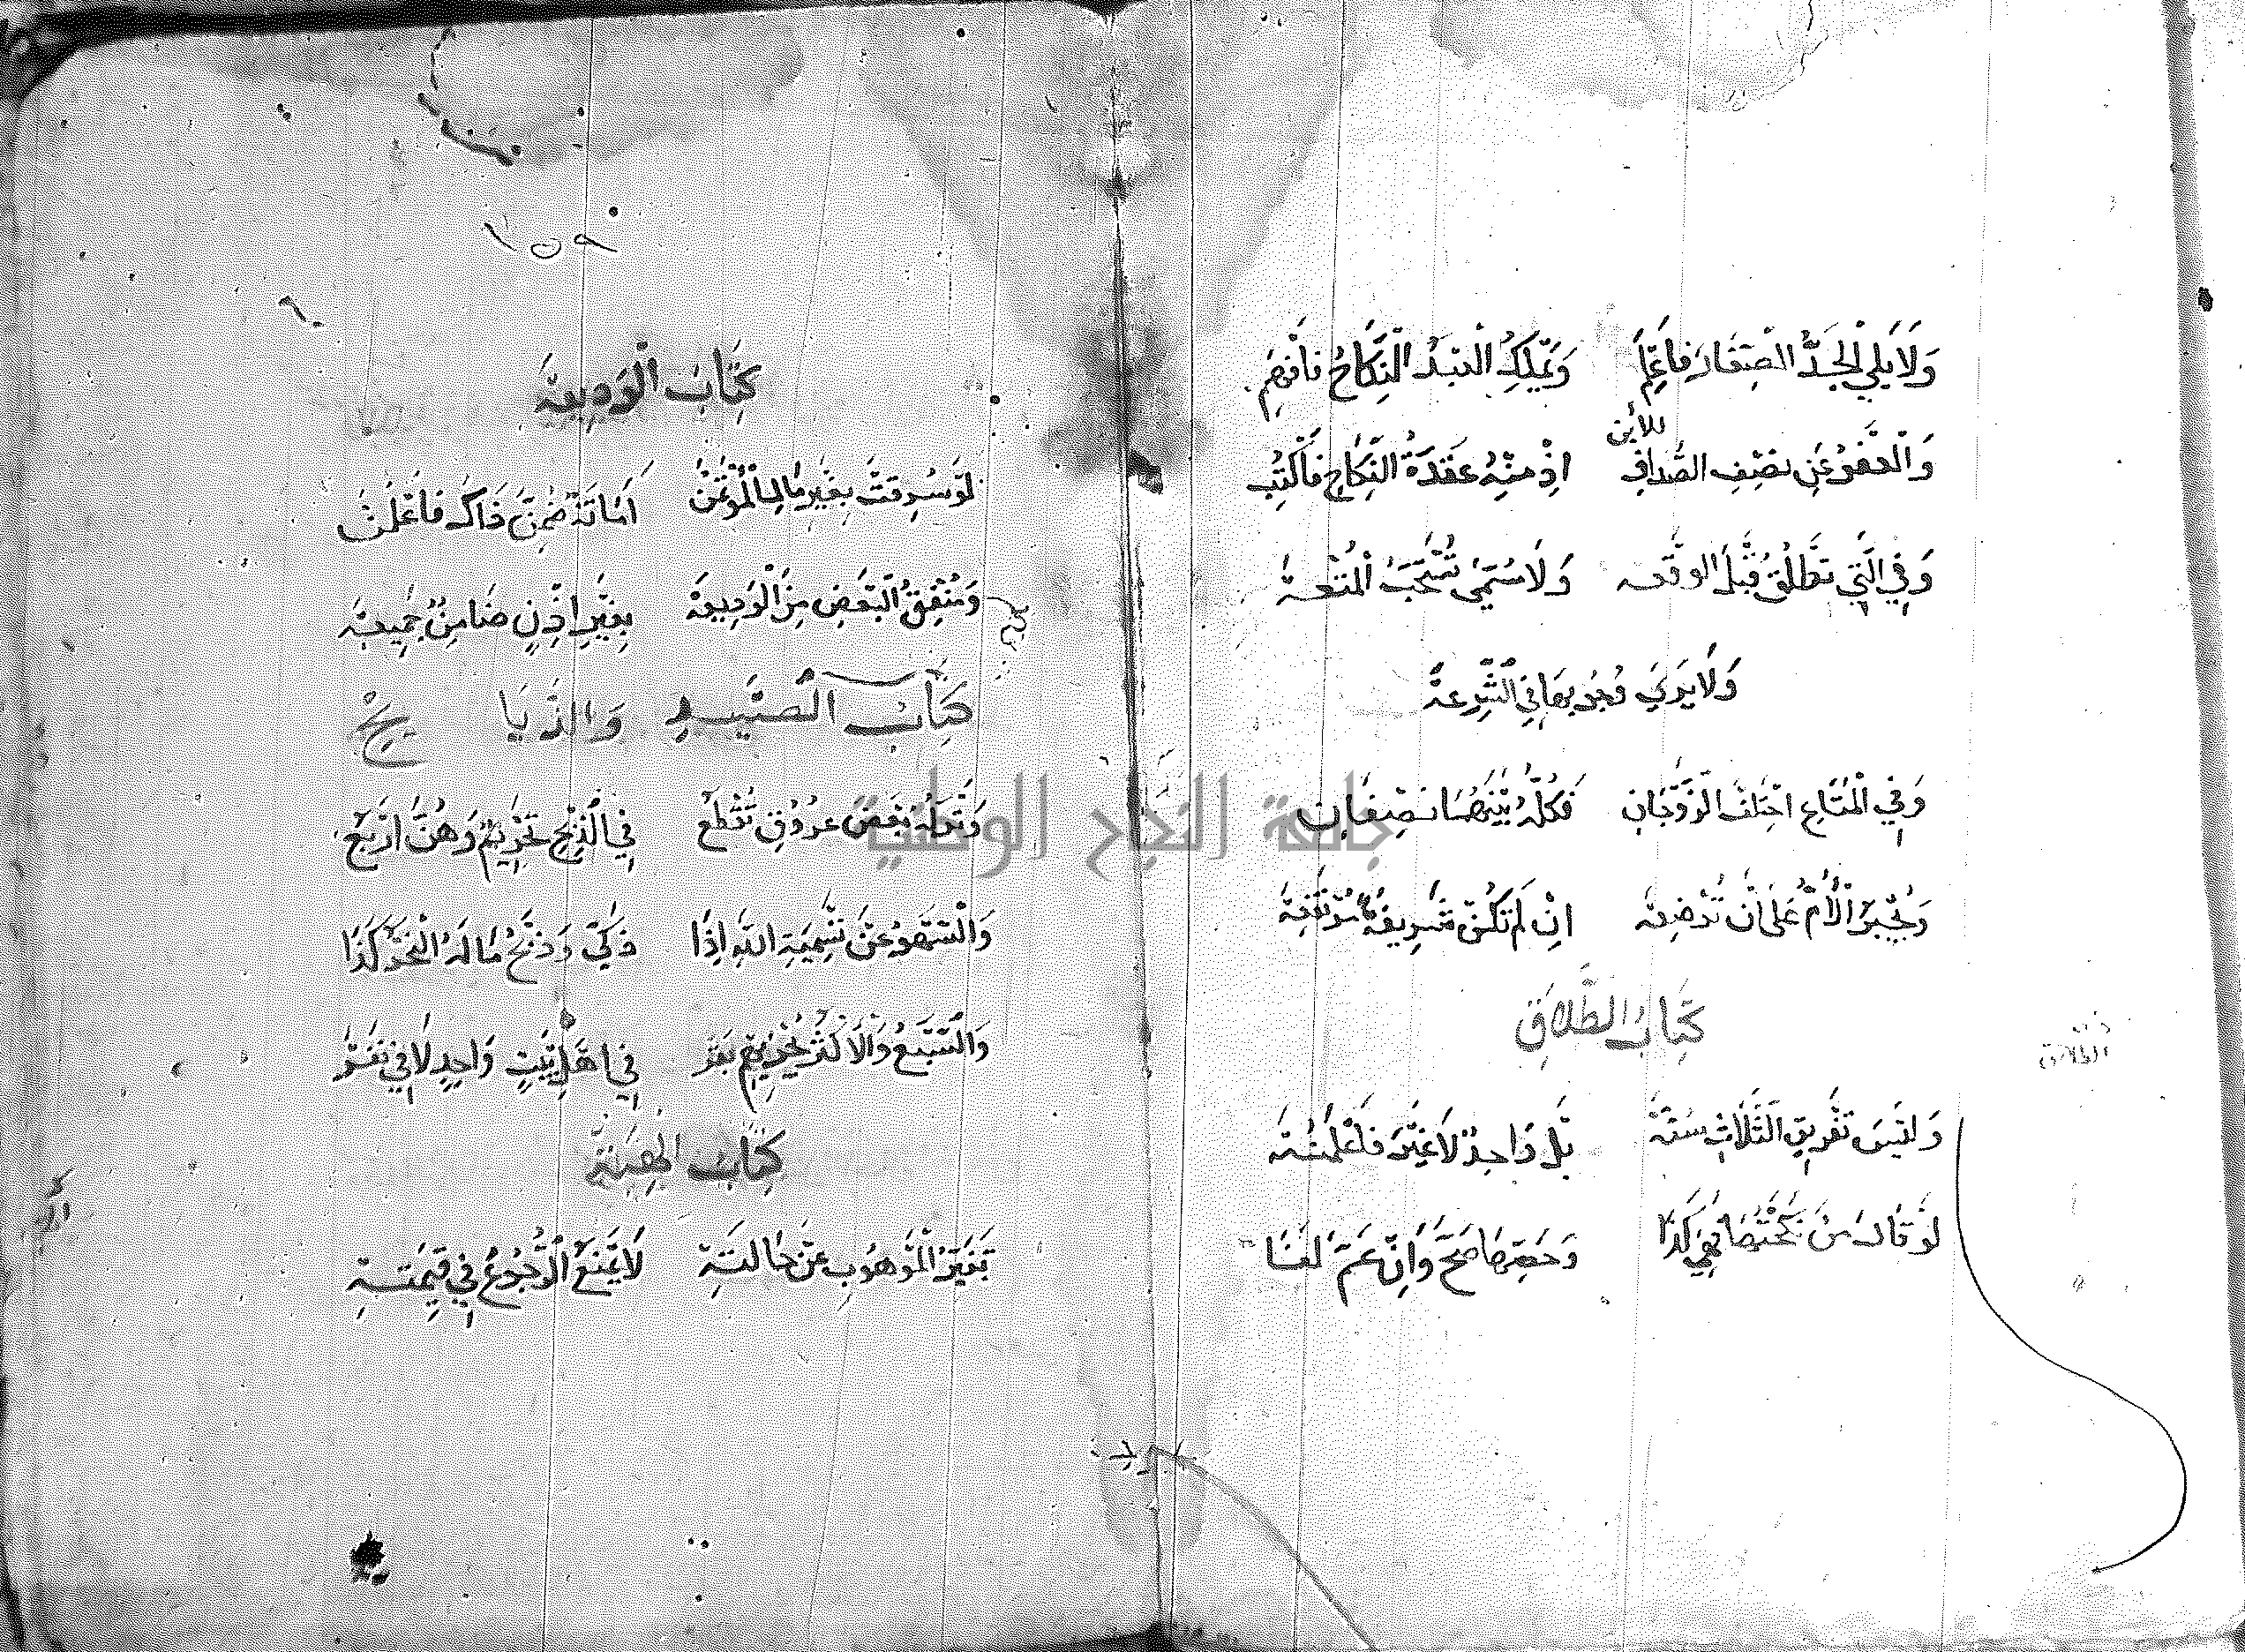 وَلَا يَلِي الْجَدُّ الصِّغَارَ فَاعْلَمِ وَيَمْلِكُ الْعَبْدُ النِّكَاحَ فَافْهَمِ
للأبن
وَالْعَفْوُ عَنْ نِصْفِ الصَّدَاقِ اِذْ مِنْهُ عُقْدَةُ النِّكَاحِ فَاكْتُبِ
وَفِي الَّتِي تُطَلَّقُ قَبْلَ الوَقْعَه وَلَا سُمِّيَ تُسْتَحَبُّ الْمُتْعَه
وَلَا يَرَى وُجُوبَهَا فِي الشِّرْعَةْ
وَفِي الْمَتَاعِ اخْتَلَفَ الزَّوْجَانِ فَكُلُّهُ بَيْنَهُمَا نِصْفَانِ
وَتُجْبَرُ الْأُمُّ عَلَى اَنْ تُرْضِعَه اِنْ لَمْ تَكُنْ شَرِيفَةً مُرْتَفِعَةْ
كِتَابُ الطَّلَاقِ
الطلاق
وَلَيْسَ تَفْرِيقُ الثَّلَاثِ سُنَّةْ بَلْ وَاحِدٌ لَا غَيْرَ فَاعْلَمَنَّهْ
لَوْ قَالَ مَنْ نَكَحْتُهَا فَهِيَ كَذَا وَحَصَرَهَا صَحَّ وَاِنْ عَمَّ لَغَا
١٥٩
كِتَابُ الْوَدِيعَة
لَوْ سُرِقَتْ بِغَيْرِ مَالِ الْمُؤْتَمَنْ اَمَانَةٌ ضُمِّنَ ذَاكَ فَاعْلَمَنْ
وَمُنْفِقُ الْبَعْضِ مِنَ الْوَدِيعَهْ بِغَيْرِ اِذْنٍ ضَامِنٌ جَمِيعَهْ
كِتَابُ الصَّيْدِ وَالذَّبَايِحْ
وَتَرْكُهُ بَعْضَ عُرُوقٍ تُقْطَعُ فِي الذَّبْحِ تَحْرِيمٌ وَهُنَّ اَرْبَعُ
وَالسَّهْوُ عَنْ تَسْمِيَةِ اللهِ اِذَا ذَكَّى وَذَبْحُ مَا لَهُ النَّحْرُ كَذَا
وَالسَّبْعُ وَالْاَكْثَرُ تَجْزِيهِمْ بَقَرْ فِي اَهْلِ بَيْتٍ وَاحِدٍ لَا فِي نَفَرْ
كِتَابُ الْهِبَة
تَغَيُّرُ الْمَوْهُوبِ عَنْ حَالَتِهْ لَا يَمْنَعُ الرُّجُوعَ فِي قِيمَتِهْ
جامعة النجاح الوطنية